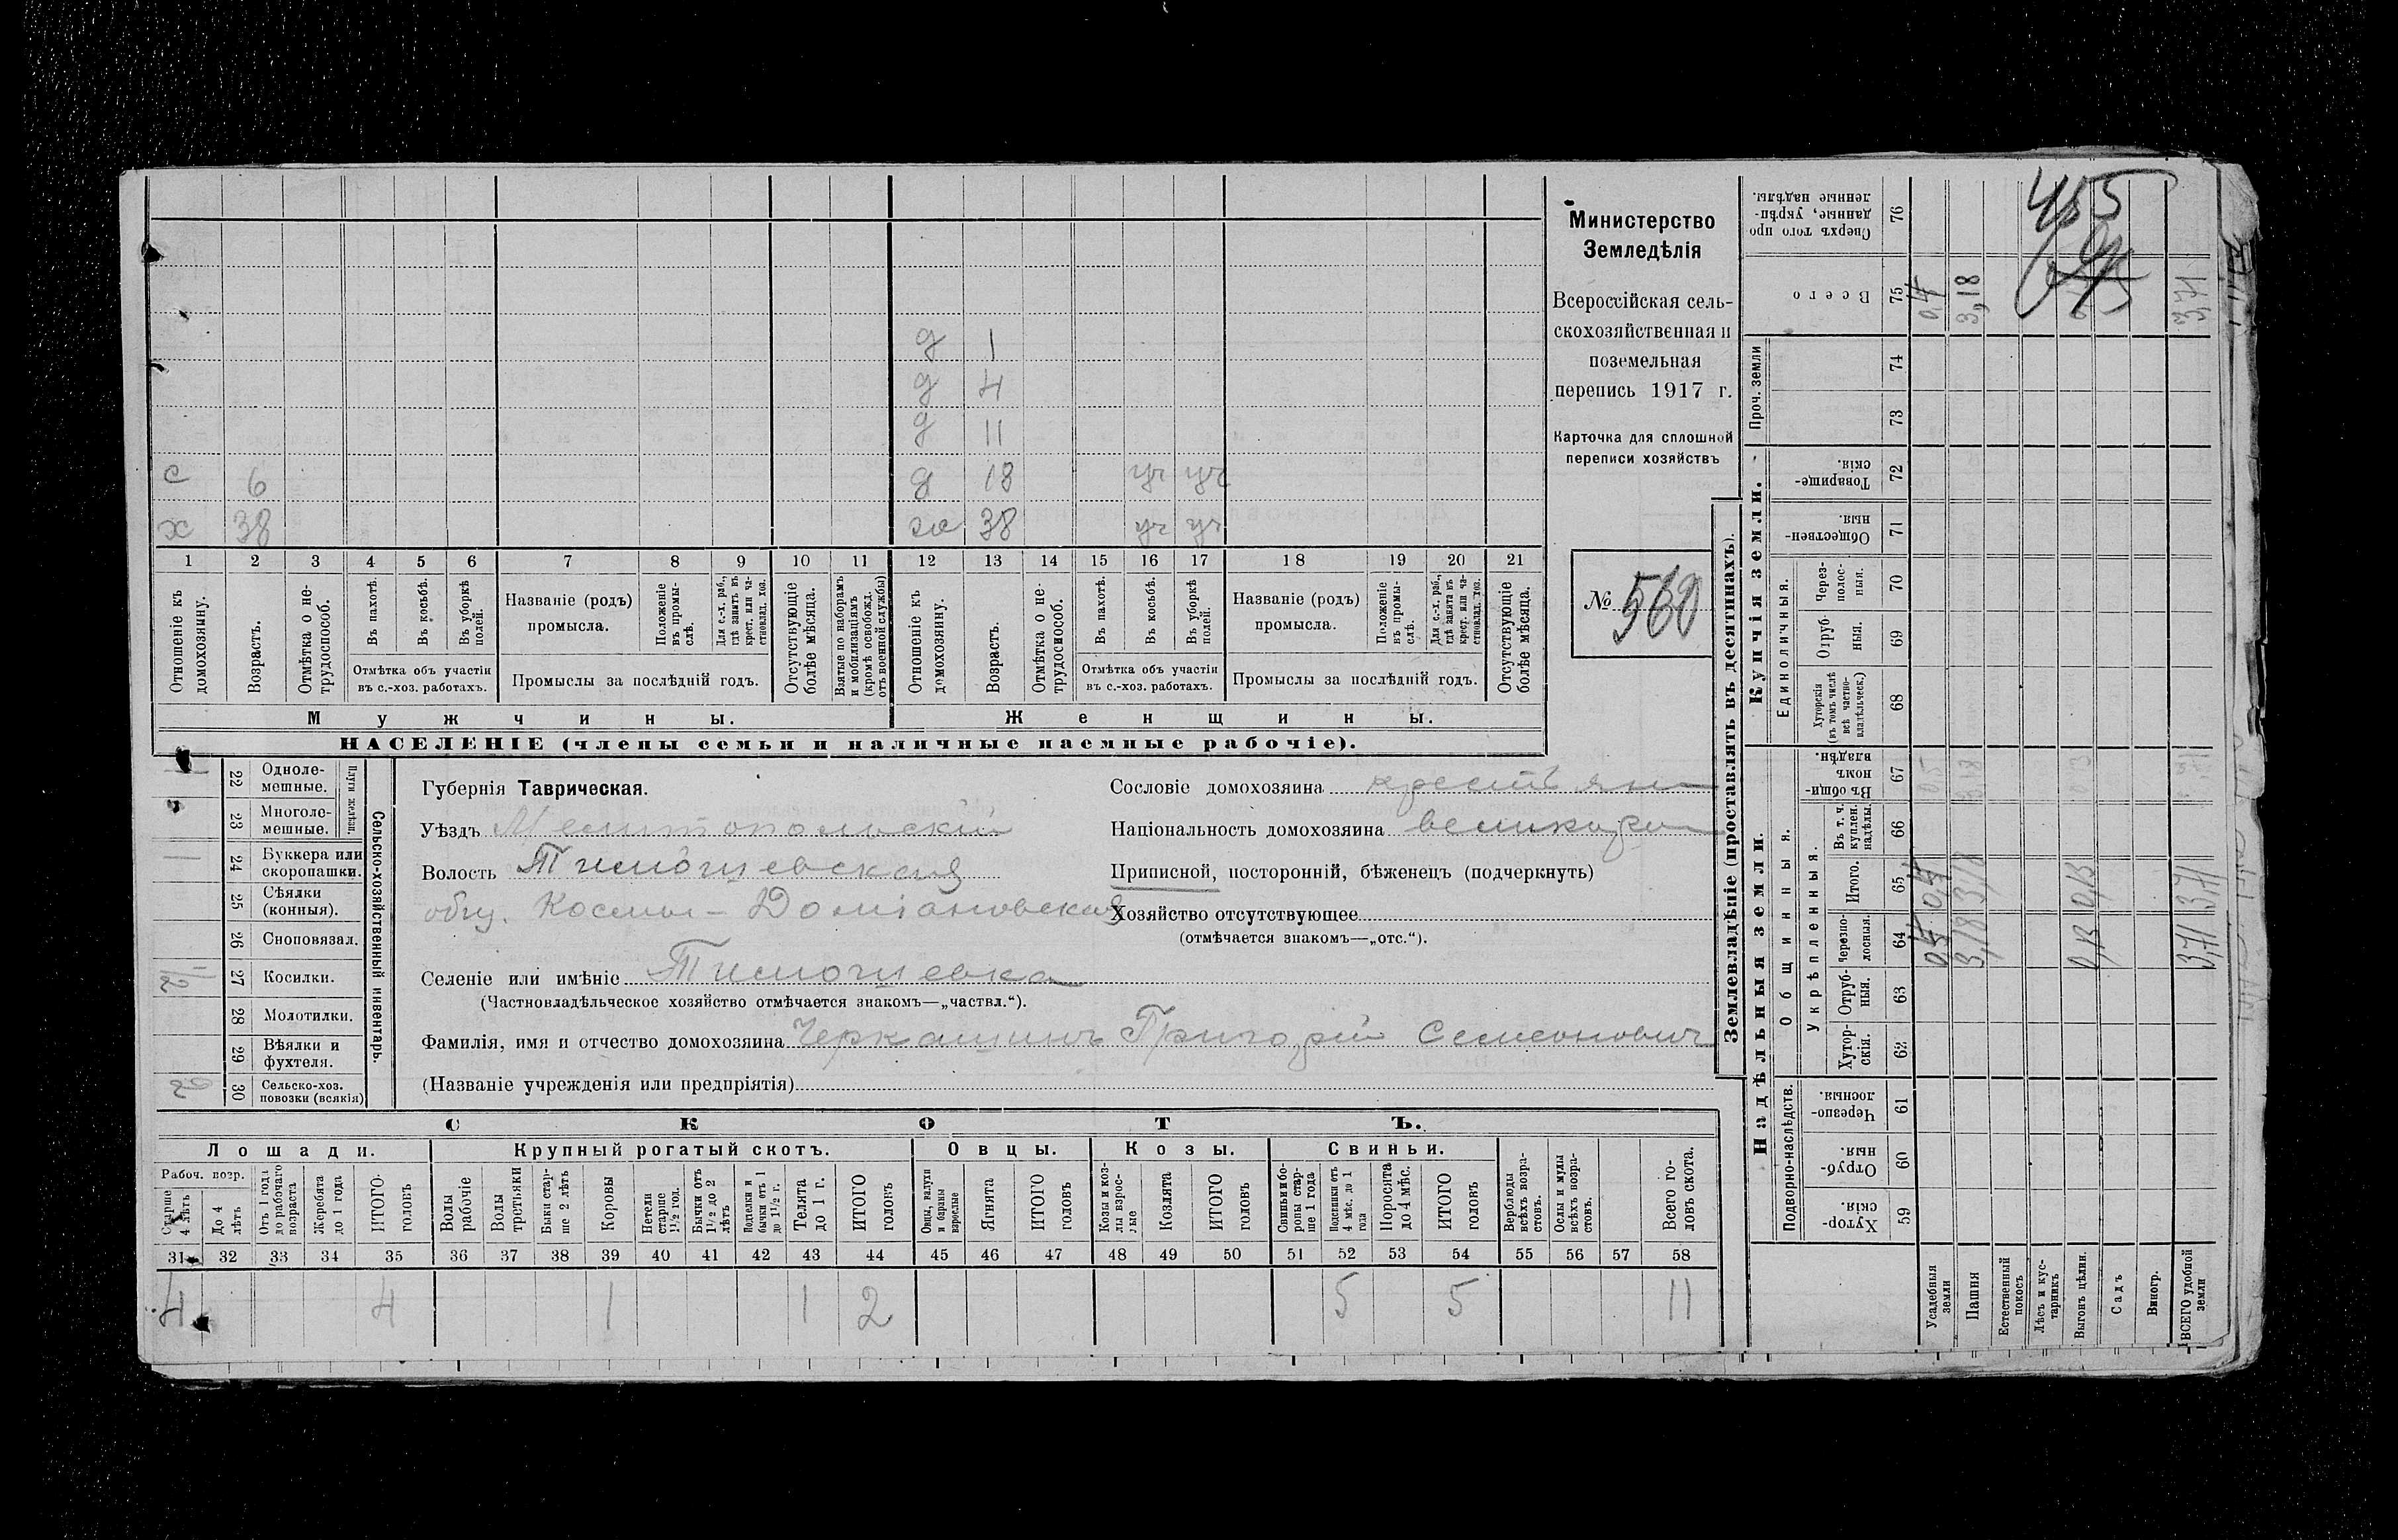 Министерство
Земледѣлія
Всероссійская сель-
скохозяйственная и
поземельная
перепись 1917 г.
Карточка для сплошной
переписи хозяйствъ
№ 560
д 1
д 4
д 11
с 6 д 18 уч уч
х 38 хо 38 уч уч
1 2 3 4 5 6 7 8 9 10 11 12 13 14 15 16 17 18 19 20 21
Отношеніе къ домохозяину.
Возрастъ.
Отмѣтка о не-трудоспособ.
Въ пахотѣ.
Въ косьбѣ.
Въ уборкѣ полей.
Отмѣтка объ участіи
въ с.-хоз. работахъ.
Названіе (родъ)
промысла.
Положеніе въ промы-слѣ.
Для с.-х. раб., гдѣ занятъ въ крест. или ча-стновлад. хоз.
Промыслы за послѣдній годъ.
Отсутствующіе болѣе мѣсяца.
Взятые по наборамъ и мобилизаціямъ (кромѣ освобожд. отъ военной службы)
Отношеніе къ домохозяину.
Возрастъ.
Отмѣтка о не-трудоспособ.
Въ пахотѣ.
Въ косьбѣ.
Въ уборкѣ полей.
Отмѣтка объ участіи
въ с.-хоз. работахъ.
Названіе (родъ)
промысла.
Положеніе въ промы-слѣ.
Для с.-х. раб., гдѣ занята въ крест. или ча-стновлад. хоз.
Промыслы за послѣдній годъ.
Отсутствующіе болѣе мѣсяца.
Мужчины. Женщины.
НАСЕЛЕНІЕ (члены семьи и наличные наемные рабочіе).
Сельско-хозяйственный инвентарь.
Плуги желѣзн.
22 Одноле-мешные. 1
23 Многоле-мешные.
24 Буккера или скоропашки. 1
25 Сѣялки (конныя).
26 Сноповязал.
27 Косилки. 1/2
28 Молотилки.
29 Вѣялки и фухтеля.
30 Сельско-хоз. повозки (всякія) 2
Губернія Таврическая.
Уѣздъ Мелитопольскій
Волость Тимошевская
общ. Космы-Доміановская
Селеніе или имѣніе Тимошевка
(Частновладѣльческое хозяйство отмѣчается знакомъ—„частвл.“).
Фамилія, имя и отчество домохозяина Черкашинъ Григорій Семеновичъ
(Названіе учрежденія или предпріятія)
Сословіе домохозяина крестьян
Національность домохозяина великор
Приписной, посторонній, бѣженецъ (подчеркнуть)
Хозяйство отсутствующее
(отмѣчается знакомъ—„отс.“).
СКОТЪ.
Лошади. Крупный рогатый скотъ. Овцы. Козы. Свиньи.
Рабоч. возр.
Старше 4 лѣтъ
До 4 лѣтъ
Отъ 1 года до рабочаго возраста
Жеребята до 1 года
ИТОГО головъ
Волы рабочіе
Волы третьяки
Быки стар-ше 2 лѣтъ
Коровы
Нетели старше 1½ год.
Бычки отъ 1½ до 2 лѣтъ
Подтелки и бычки отъ 1 до 1½ г.
Телята до 1 г.
ИТОГО головъ
Овцы, валухи и бараны взрослые
Ягнята
ИТОГО головъ
Козы и коз-лы взрос-лые
Козлята
ИТОГО головъ
Свиньи и бо-ровы стар-ше 1 года
Подсвинки отъ 4 мѣс. до 1 года
Поросята до 4 мѣс.
ИТОГО головъ
Верблюды всѣхъ возра-стовъ.
Ослы и мулы всѣхъ возра-стовъ.
Всего го-ловъ скота.
31 32 33 34 35 36 37 38 39 40 41 42 43 44 45 46 47 48 49 50 51 52 53 54 55 56 57 58
4 4 1 1 2 5 5 11
Землевладѣніе (проставлять въ десятинахъ).
Надѣльныя земли. Купчія земли. Проч. земли
Подворно-наслѣдств.
Общинныя.
Укрѣпленныя.
Единоличныя.
59 Хутор-скія.
60 Отруб-ныя.
61 Черезпо-лосныя.
62 Хутор-скія.
63 Отруб-ныя.
64 Черезпо-лосныя.
65 Итого.
66 Въ т. ч. куплен. надѣлы.
67 Въ общи-номъ владѣн.
68 Хуторскія (въ томъ числѣ всѣ частно-владѣльческ.)
69 Отруб-ныя.
70 Через-полос-ныя.
71 Обществен-ныя.
72 Товарище-скія.
73
74
75 Всего
76 Сверхъ того про-данные, укрѣп-ленные надѣлы.
Усадебныя земли
Пашня 3,18 3,18 3,18 3,18
Естественный покосъ
Лѣсъ и кус-тарникъ
Выгонъ цѣлин.
Садъ
Виногр.
ВСЕГО удобной земли 3,71 3,71 3,71